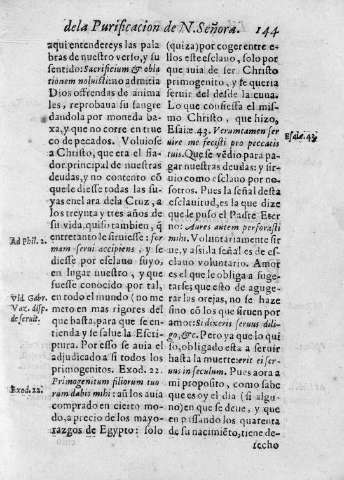 dela Purificacion de N. Señora. 144
aqui entendereys las pala
bras de nuestro verso, y su
sentido: Sacrificium & obla
tionem noluisti: no admitia
Dios ofrendas de anima
les, reprobaua su sangre
dandola por moneda ba-
xa, y que no corre en true
co de pecados. Voluiose
a Christo, que era el fia-
dor principal de nuestras
deudas, y no contento cõ
que le diesse todas las su-
yas en el ara dela Cruz, a
los treynta y tres años de
su vida, quiso tambien, q̃
entretanto le siruiesse: for
mam serui accipiens, y se
diesse por esclauo suyo,
en lugar nuestro, y que
fuesse conocido por tal,
en todo el mundo (no me
mero en mas rigores del
que basta, para que se en-
tienda y se salue la Escri-
ptura. Por esso se auia el
adjudicado a si todos los
primogenitos. Exod. 22.
Primogenitum filiorum tuo
rum dabis mihi: assi los auia
comprado en cierto mo-
do, a precio de los mayo-
razgos de Egypto: solo
Ad Phil. 2.
Vid. Gabr.
Vaz. disp.
de seruit.
Exod. 22.
(quiza) por coger entre e-
llos este esclauo, solo por
que auia de ser Christo
primogenito, y se queria
seruir del desde la cuna.
Lo que confiessa el mis-
mo Christo, que hizo,
Esaiæ. 43. Verumtamen ser
uire me fecisti pro peccatis
tuis. Que se vēdio para pa-
gar nuestras deudas; y sir-
uio como esclauo por no-
sotros. Pues la señal desta
esclauitud, es la que dize
que le puso el Padre Eter
no: Aures autem perforasti
mihi. Voluntariamente sir
ue, y assi la señal es de es-
clauo voluntario. Amor
es el que le obliga a suge-
tarse; que esto de aguge-
rar las orejas, no se haze
sino cõ los que siruen por
amor: Si dixerit seruus dili-
go, &c. Pero ya que lo qui
so, obligado esta a seruir
hasta la muerte: erit ei ser-
uus in seculum. Pues aora a
mi proposito, como sabe
que es oy el dia (si algu-
no) en que se deue, y que
en passando los quarenta
de su nacimiēto, tiene de-
recho
Esaiæ. 43.